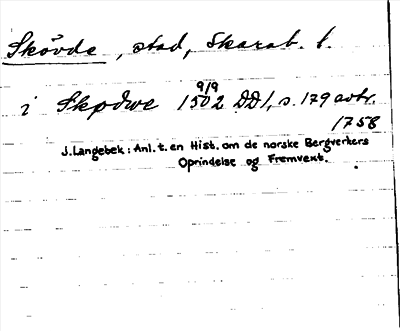 Skövde, stad, Skarab. l.
9/9
i Skødwe 1502 DD1, s. 179 avtr.
1758
J. Langebek: Anl. t. en Hist. om de norske Bergverkers
Oprindelse og Fremvext.